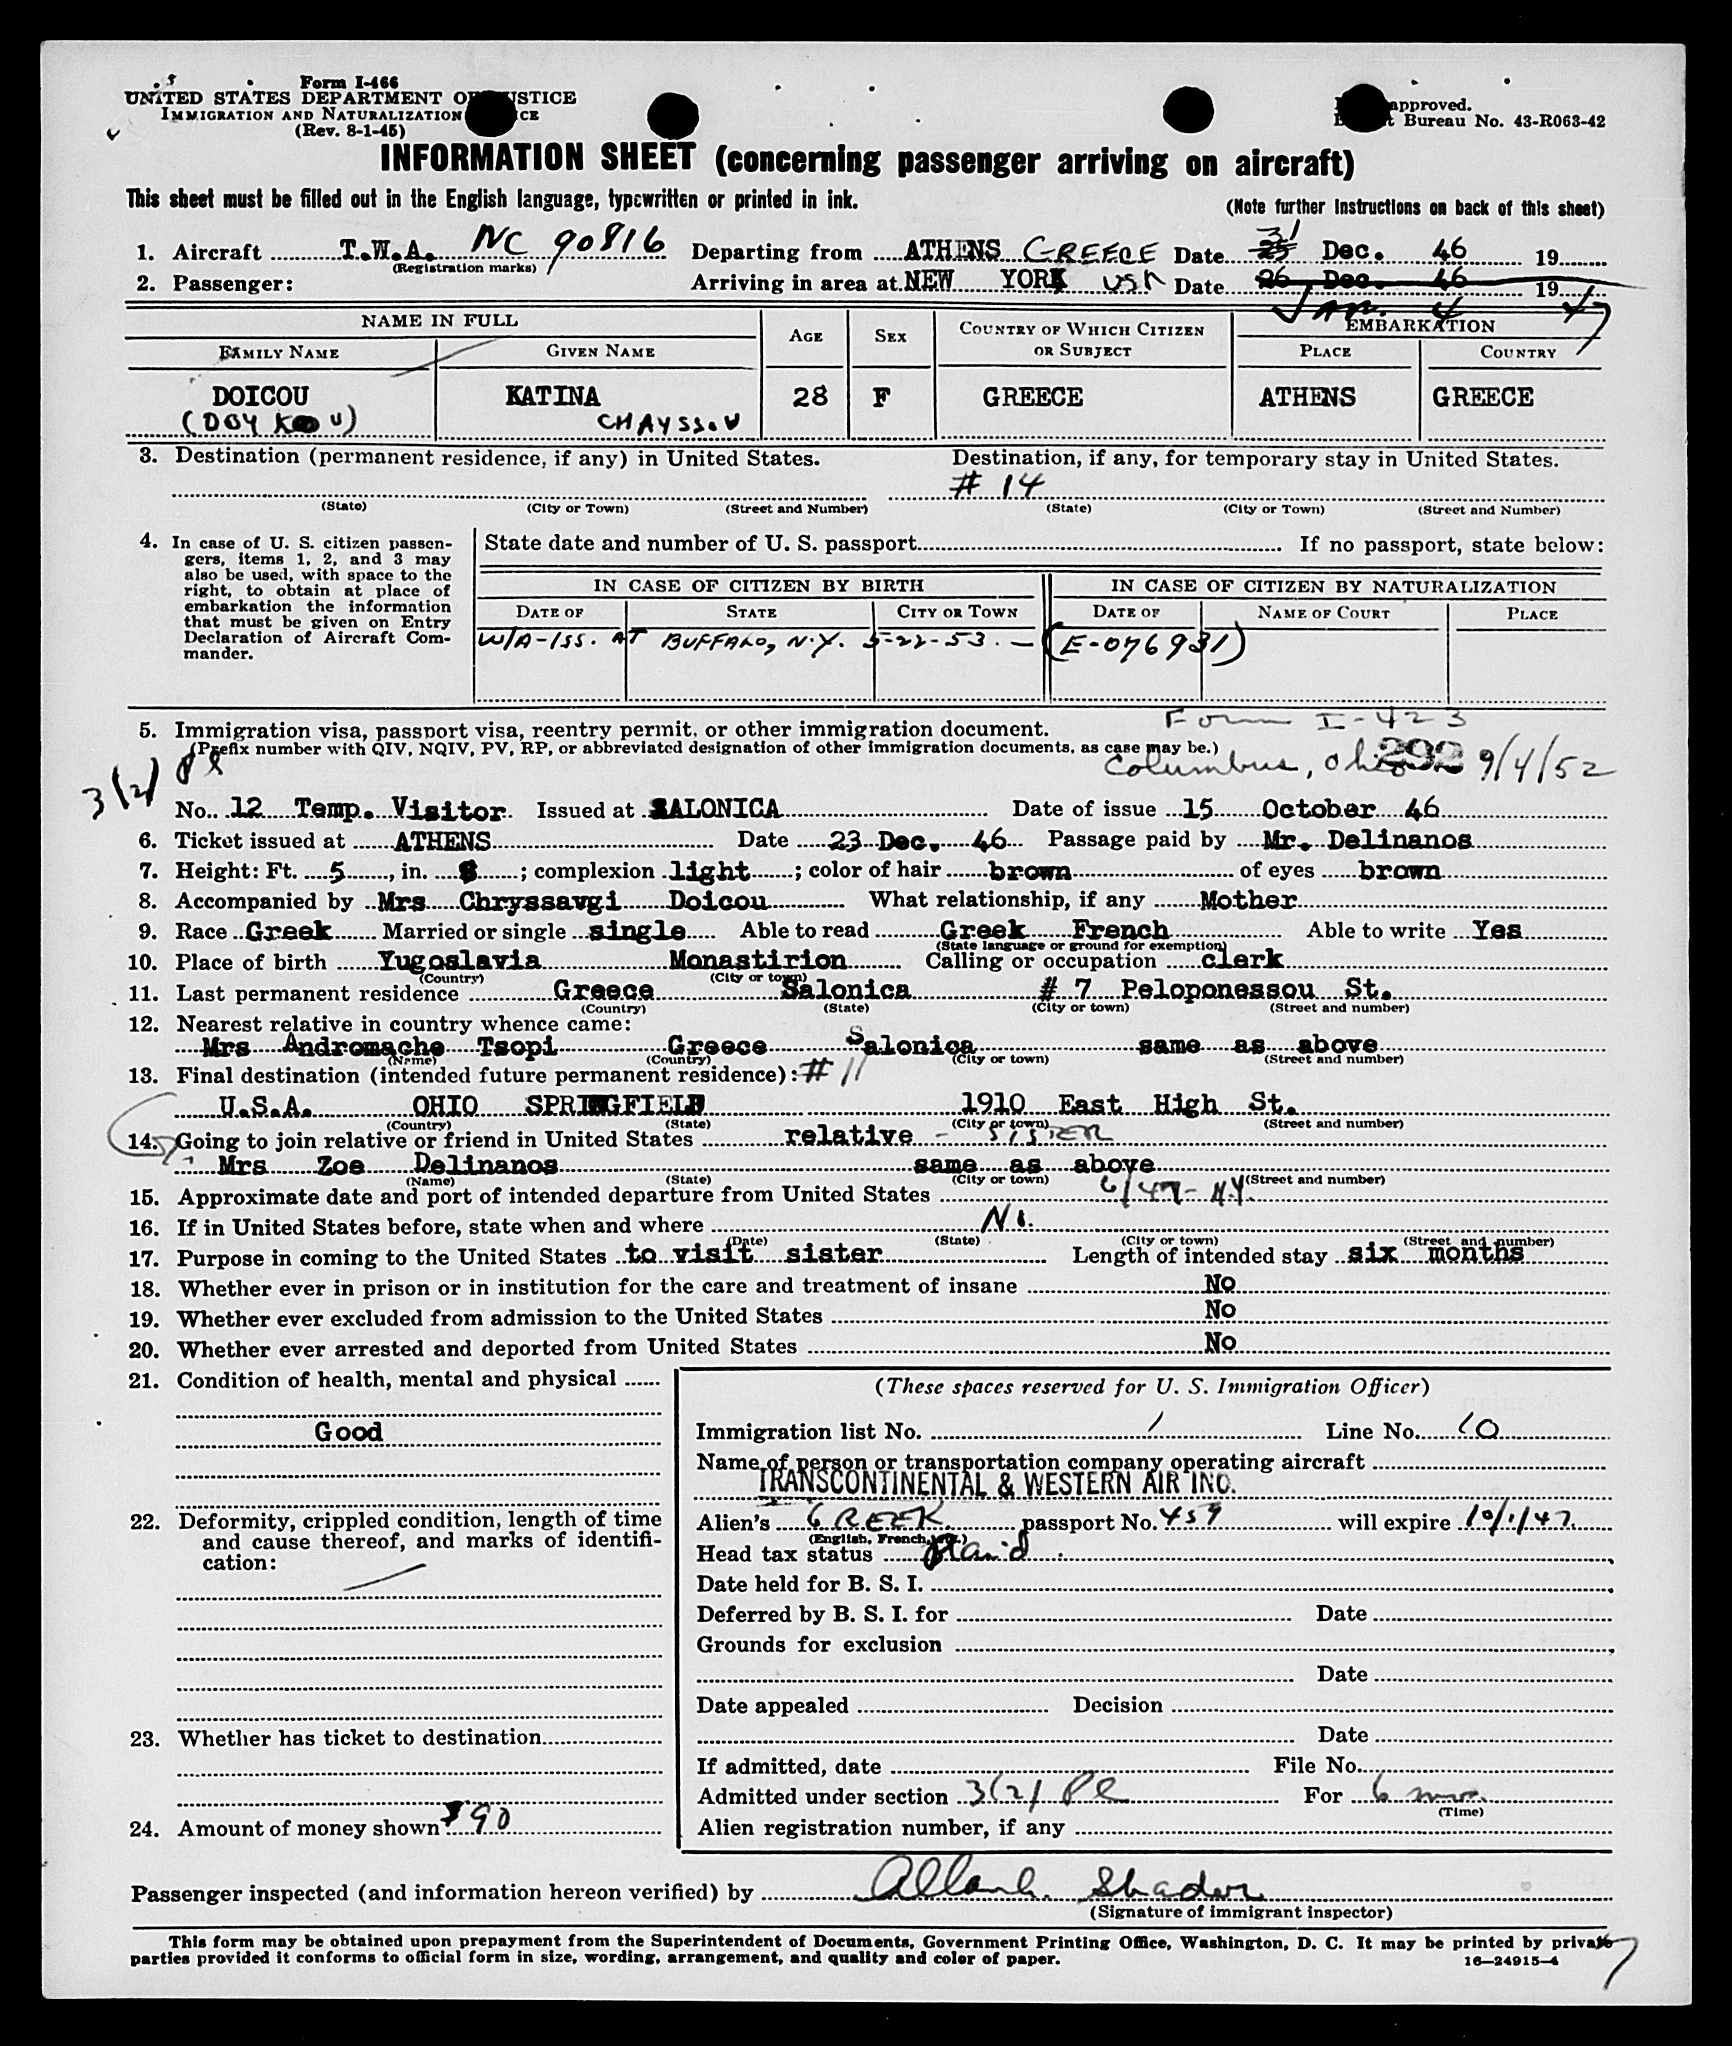 Form I-466
UNITED STATES DEPARTMENT OF JUSTICE
IMMIGRATION AND NATURALIZATION
(Rev. 8-1-45)
approved.
Bureau No. 43-R063-42
INFORMATION SHEET (concerning passenger arriving on aircraft)
This sheet must be filled out in the English language, typewritten or printed in ink.
(Note further instructions on back of this sheet)
1. Aircraft T.W.A. NC 90816 Departing from ATHENS GREECE Date 25 31 Dec. 46 19
(Registration marks)
2. Passenger: Arriving in area at NEW YORK USA Date 26 Dec. 46 19
Jan. 4 47
NAME IN FULL AGE SEX COUNTRY OF WHICH CITIZEN OR SUBJECT EMBARKATION
FAMILY NAME GIVEN NAME PLACE COUNTRY
DOICOU KATINA 28 F GREECE ATHENS GREECE
(DOYKOU) CHAYSSOU
3. Destination (permanent residence, if any) in United States. Destination, if any, for temporary stay in United States.
# 14
(State) (City or Town) (Street and Number) (State) (City or Town) (Street and Number)
4. In case of U. S. citizen passengers, items 1, 2, and 3 may also be used, with space to the right, to obtain at place of embarkation the information that must be given on Entry Declaration of Aircraft Commander.
State date and number of U. S. passport If no passport, state below:
IN CASE OF CITIZEN BY BIRTH IN CASE OF CITIZEN BY NATURALIZATION
DATE OF STATE CITY OR TOWN DATE OF NAME OF COURT PLACE
W/A-ISS. AT BUFFALO, N.Y. 5-22-53. - (E-076931)
5. Immigration visa, passport visa, reentry permit, or other immigration document. Form I-423
(Prefix number with QIV, NQIV, PV, RP, or abbreviated designation of other immigration documents, as case may be.)
Columbus, Ohio 292 9/4/52
3(2) Pl
No. 12 Temp. Visitor Issued at SALONICA Date of issue 15 October 46
6. Ticket issued at ATHENS Date 23 Dec. 46 Passage paid by Mr. Delinanos
7. Height: Ft. 5, in. 8; complexion light; color of hair brown of eyes brown
8. Accompanied by Mrs Chryssavgi Doicou What relationship, if any Mother
9. Race Greek Married or single single Able to read Greek French Able to write Yes
(State language or ground for exemption)
10. Place of birth Yugoslavia Monastirion Calling or occupation clerk
(Country) (City or town)
11. Last permanent residence Greece Salonica # 7 Peloponessou St.
(Country) (State) (City or town) (Street and number)
12. Nearest relative in country whence came:
Mrs Andromache Tsopi Greece Salonica same as above
(Name) (Country) (City or town) (Street and number)
13. Final destination (intended future permanent residence): # 11
U.S.A. OHIO SPRINGFIELD 1910 East High St.
(Country) (State) (City or town) (Street and number)
14. Going to join relative or friend in United States relative - SISTER
Mrs Zoe Delinanos same as above
(Name) (State) (City or town) (Street and number)
15. Approximate date and port of intended departure from United States 6/47- N.Y.
16. If in United States before, state when and where No.
(Date) (State) (City or town) (Street and number)
17. Purpose in coming to the United States to visit sister Length of intended stay six months
18. Whether ever in prison or in institution for the care and treatment of insane No
19. Whether ever excluded from admission to the United States No
20. Whether ever arrested and deported from United States No
21. Condition of health, mental and physical
Good
22. Deformity, crippled condition, length of time and cause thereof, and marks of identification:
23. Whether has ticket to destination
24. Amount of money shown $90
(These spaces reserved for U. S. Immigration Officer)
Immigration list No. 1 Line No. 10
Name of person or transportation company operating aircraft
TRANSCONTINENTAL & WESTERN AIR INC.
Alien's GREEK passport No. 459 will expire 10/1/47
(English, French, etc.)
Head tax status Paid
Date held for B. S. I.
Deferred by B. S. I. for Date
Grounds for exclusion
Date
Date appealed Decision
Date
If admitted, date File No.
Admitted under section 3(2) Pl For 6 mos.
(Time)
Alien registration number, if any
Passenger inspected (and information hereon verified) by
(Signature of immigrant inspector)
This form may be obtained upon prepayment from the Superintendent of Documents, Government Printing Office, Washington, D. C. It may be printed by private
parties provided it conforms to official form in size, wording, arrangement, and quality and color of paper.
16—24915-4